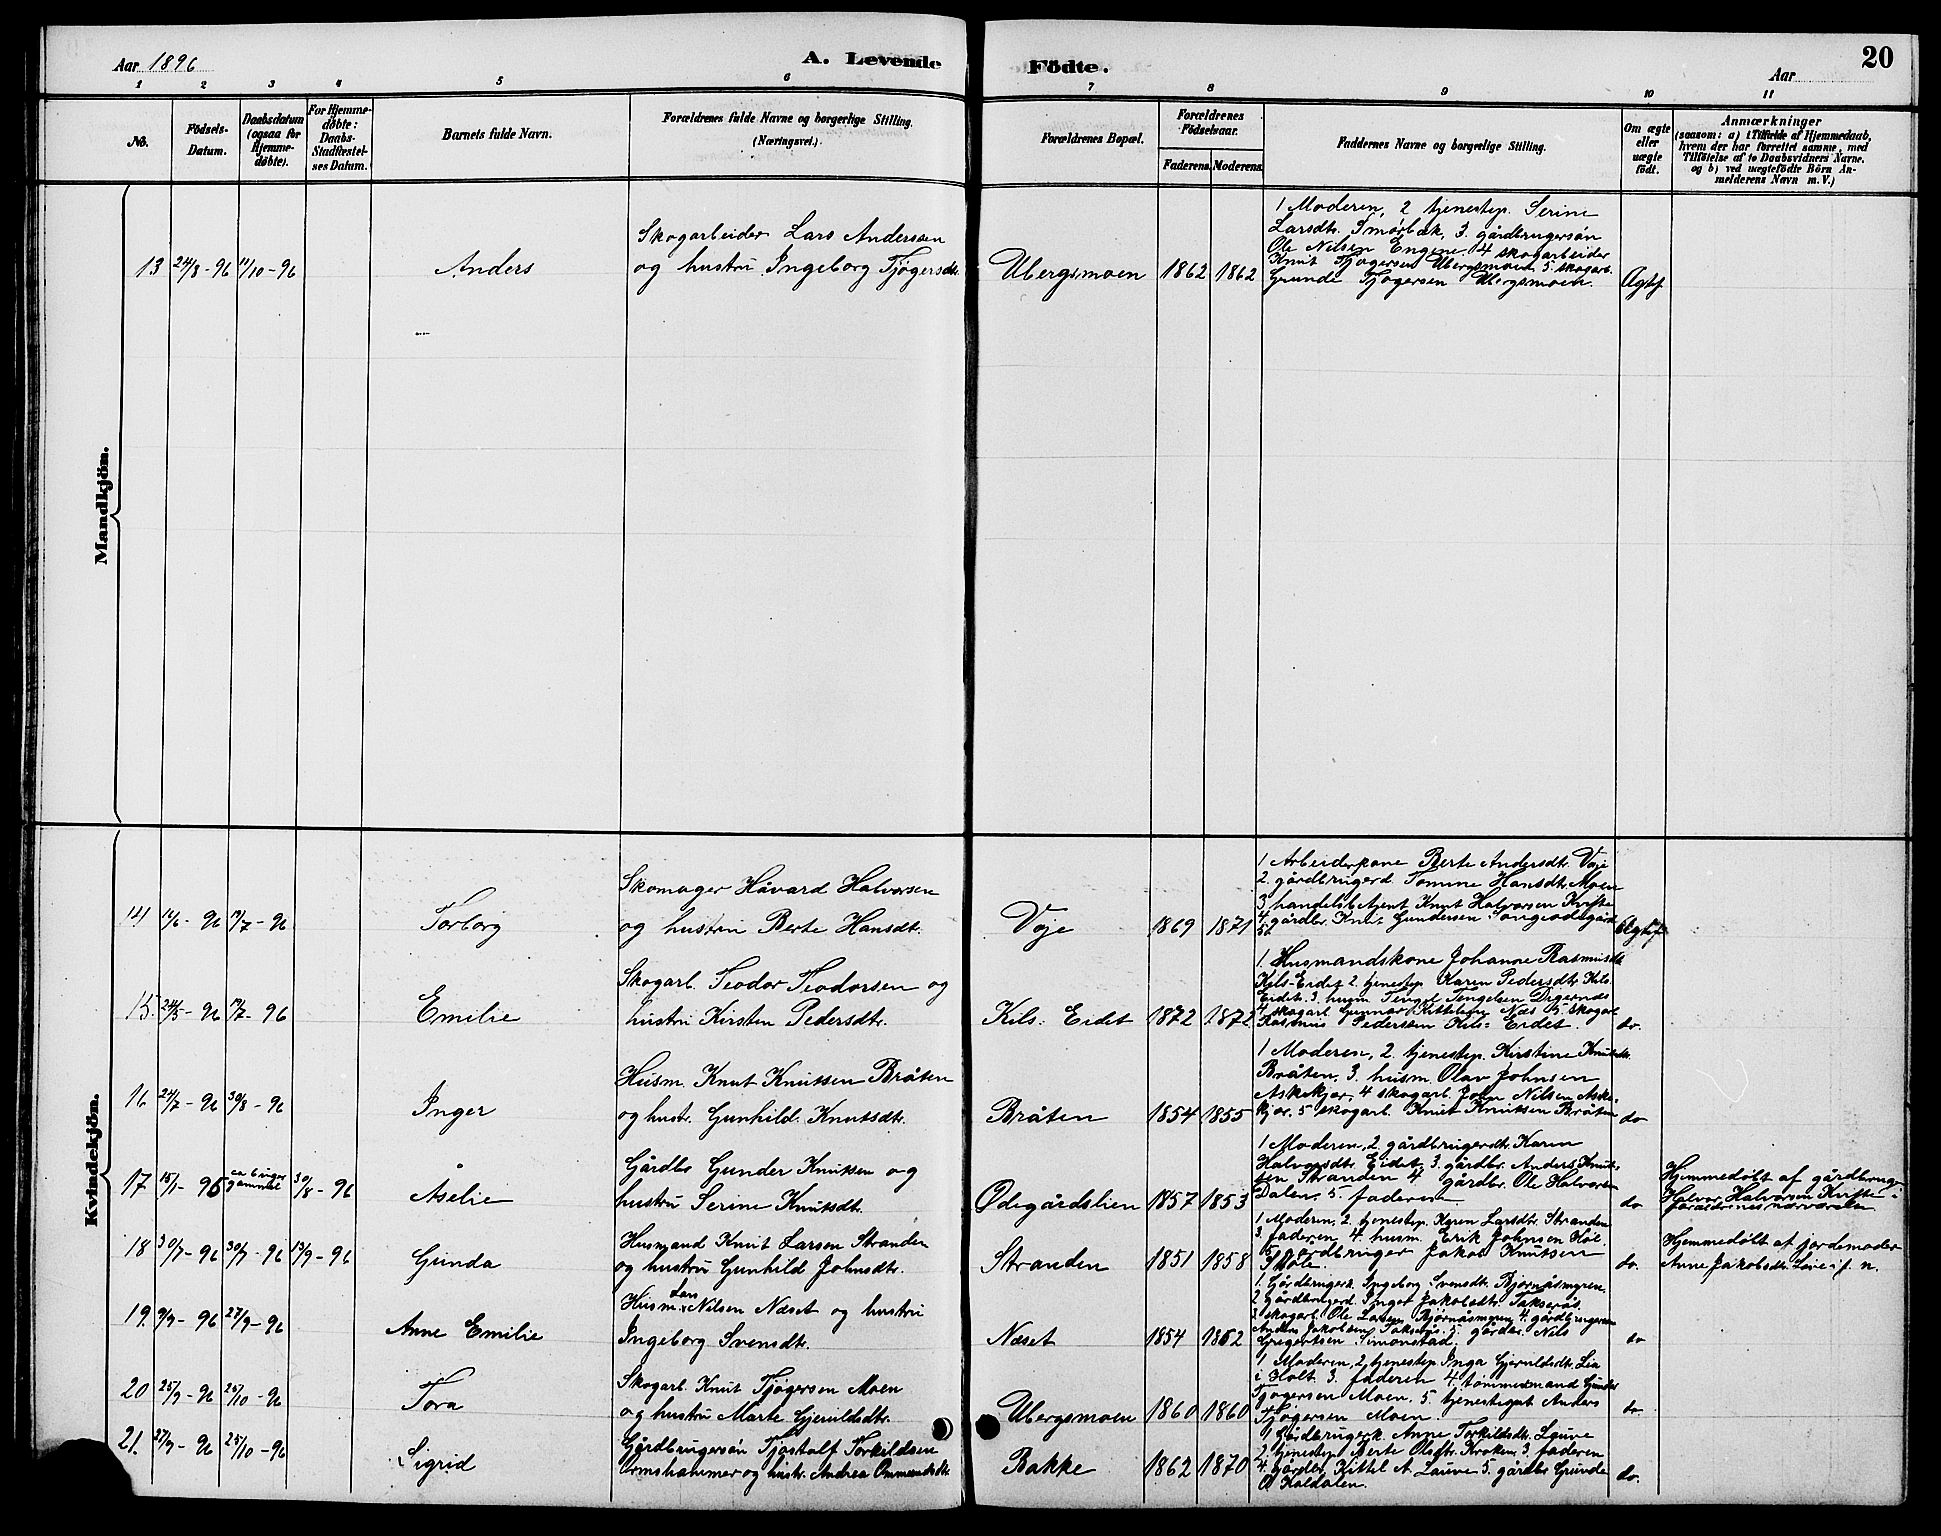 Aar 1896
A. Levende Födte.
Aar
20
1 2 3 4 5 6 7 8 9 10 11
No.
Födsels-Datum.
Daabsdatum (ogsaa for Hjemme-døbte).
For Hjemme-døbte: Daabs-Stadfæstel-ses Datum.
Barnets fulde Navn.
Forældrenes fulde Navne og borgerlige Stilling. (Næringsvei.)
Forældrenes Bopæl.
Forældrenes Födselsaar.
Faderens. Moderens.
Faddernes Navne og borgerlige Stilling.
Om ægte eller uægte født.
Anmærkninger
(saasom: a) i Tilfælde af Hjemmedaab,
hvem der har forrettet samme, med
Tilföielse af to Daabsvidners Navne.
og b) ved uægtefödte Börn An-
melderens Navn m. V.)
Mandkjön.
13 24/8-96 11/10-96
Anders
Skogarbeider Lars Anderssen
og hustru Ingeborg Tjøgersdtr.
Ubergsmoen 1862 1862
1 Moderen, 2 tjenestep. Serine
Larsdtr. Smørbæk, 3. gårdbrugersøn
Ole Nilsen Engene 4 skogarbeider
Knut Tjøgersen Ubergsmoen 5. skogarb.
Gunde Tjøgersen Ubergsmoen.
Ægtf.
Kvindekjön.
14 -96 /7-96
Torborg
Skomager Håvard Halvorsen
og hustru Berte Hansdtr.
Voje 1869 1871
1 Arbeiderkone Berte Andersdtr. Voje
2. gårdbrugerd. Tomine Hansdtr. Moen
3 handelsbetjent Knut Halvorsen Kvifte
4. gårdbr. Knut Gundersen Songeødegård
Ægtef
15. 24/5-96 /7-96
Emilie
Skogarb. Teodor Teodorsen og
hustru Kirsten Pedersdtr.
Kils: Eidet 1872 1872
1. Husmandskone Johanne Rasmusdtr
Kils-Eidet 2. tjenestep. Karen Pedersdtr. Kils.
Eidet. 3. husm. Tengel Tengelsen Digernæs
4 skogarb. Gunnar Kittelsen Næs 5. skogarb
Rasmus Pedersen Kils: Eidet.
do.
16 24/7-96 30/8-96
Inger
Husm. Knut Knutsen Bråten
og hustr. Gunhild Knutsdtr.
Bråten 1854 1855
1 Moderen, 2. tjenestep. Kirstine Knutsdtr.
Bråten, 3. husm. Olav Johnsen
Askekjær, 4 skogarb. John Nilsen Aske-
kjær, 5 skogarb. Knut Knutsen Bråten
do
17 15/1-96 ca 6 uger gammel 30/8-96
Åselie
Gårdbr Gunder Knutsen og
hustru Serine Knutsdtr.
Ødegårdslien 1857 1853
1 Moderen, 2 gårdbrugerdtr. Karen
Halvorsdtr. Eidet, 3. gårdbr. Anders Knut-
sen Stranden 4 gårdbr. Ole Halvorsen
Dalen, 5. faderen
do
Hjemmedøbt af gårdbruger
Halvor Halvorsen Kvifte i
forældrenes nærværelse
18 30/7-96 30/7-96 13/9-96
Gunda
Husmand Knut Larsen Stranden
og hustru Gunhild Johnsdtr.
Stranden 1851 1858
1 Moderen, 2. tjenestep. Karen Larsdtr. Stranden
3. faderen, 4. husm. Erik Johnsen Høl.
5 gårdbruger Jakob Knutsen
Skole.
do.
Hjemmedøbt af jordemoder
Anne Jakobsdtr. i f. n.
19. 9/9-96 27/9-96
Anne Emilie
Husm. Lars Nilsen Næset og hustru
Ingeborg Svensdtr.
Næset 1854 1862
1. Gårdbrugerk. Ingeborg Svensdtr. Bjørnåsmyren,
2 gårdbrugerd. Inger Jakobsdtr. Takserås
3 skogarb. Ole Larsen Bjørnåsmyren 4. gårdbrugersøn
Anders Jakobsen Takserås 5. gårdbr. Nils
Gregertsen Simonstad.
do
20 25/9-96 25/10-96
Tora
Skogarb. Knut Tjøgersen Moen
og hustru Marte Gjeruldsdtr.
Ubergsmoen 1860 1860
1 Moderen, 2 tjenestep. Inga Gjeruldsdtr. Lia
i Holt. 3. faderen 4. tømmermand Gunder
Tjøgersen Moen. 5. tjenestegut Anders
Tjøgersen Moen.
do.
21. 27/9-96 25/10-96
Sigrid
Gårdbrugersøn Tjostolf Torkildsen
Ormshammer og hustr. Andrea Ommundsdtr.
Bakke 1862 1870
1 Gårdbrugerk. Anne Torkildsdtr. Lauve
2 tjenestep. Berte Olsdtr. Kroken, 3 faderen
4. gårdbr. Kittil A. Lauve 5. gårdbr. Grunde
O Kaldalen.
do.